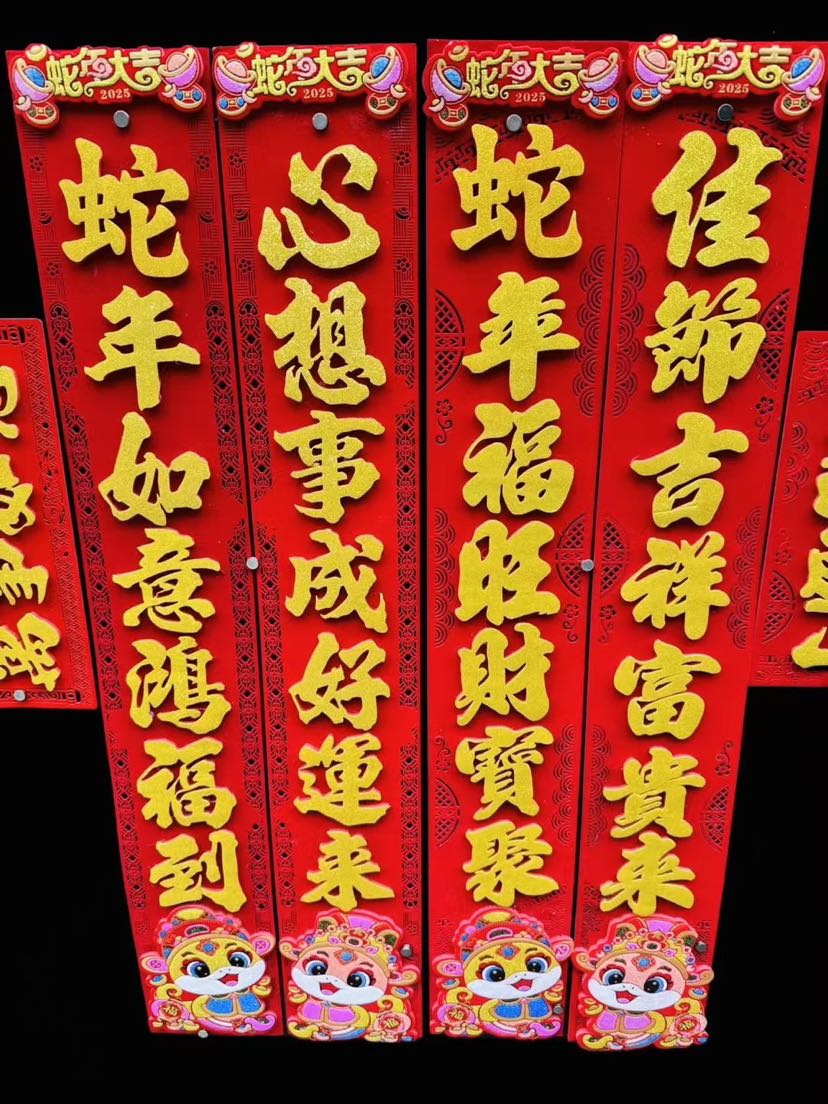 蛇年大吉
2025
蛇年如意鴻福到
福
蛇年大吉
2025
心想事成好運来
福
蛇年大吉
2025
蛇年福旺財寶聚
福
蛇年大吉
2025
佳節吉祥富貴来
福